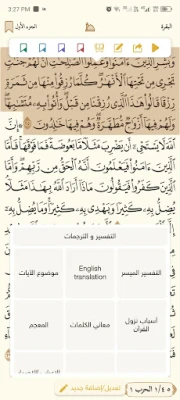 3:27 PM
البقرة
الجزء الأول
وَبَشِّرِ الَّذِينَ ءَامَنُوا وَعَمِلُوا الصَّالِحَاتِ أَنَّ لَهُمْ جَنَّاتٍ
تَجْرِي مِن تَحْتِهَا الْأَنْهَارُ كُلَّمَا رُزِقُوا مِنْهَا مِن ثَمَرَةٍ
رِّزْقًا قَالُوا هَٰذَا الَّذِي رُزِقْنَا مِن قَبْلُ وَأُتُوا بِهِ مُتَشَابِهًا
وَلَهُمْ فِيهَا أَزْوَاجٌ مُّطَهَّرَةٌ وَهُمْ فِيهَا خَالِدُونَ ۞ إِنَّ
اللَّهَ لَا يَسْتَحْيِ أَن يَضْرِبَ مَثَلًا مَّا بَعُوضَةً فَمَا فَوْقَهَا فَأَمَّا
الَّذِينَ ءَامَنُوا فَيَعْلَمُونَ أَنَّهُ الْحَقُّ مِن رَّبِّهِمْ وَأَمَّا
الَّذِينَ كَفَرُوا فَيَقُولُونَ مَاذَا أَرَادَ اللَّهُ بِهَٰذَا مَثَلًا
يُضِلُّ بِهِ كَثِيرًا وَيَهْدِي بِهِ كَثِيرًا وَمَا يُضِلُّ بِهِ
التفسير و الترجمات
التفسير الميسر
English translation
موضوع الآيات
أسباب نزول القرآن
معاني الكلمات
المعجم
تعديل/إضافة جديد
١/٤ الحزب ١
٥